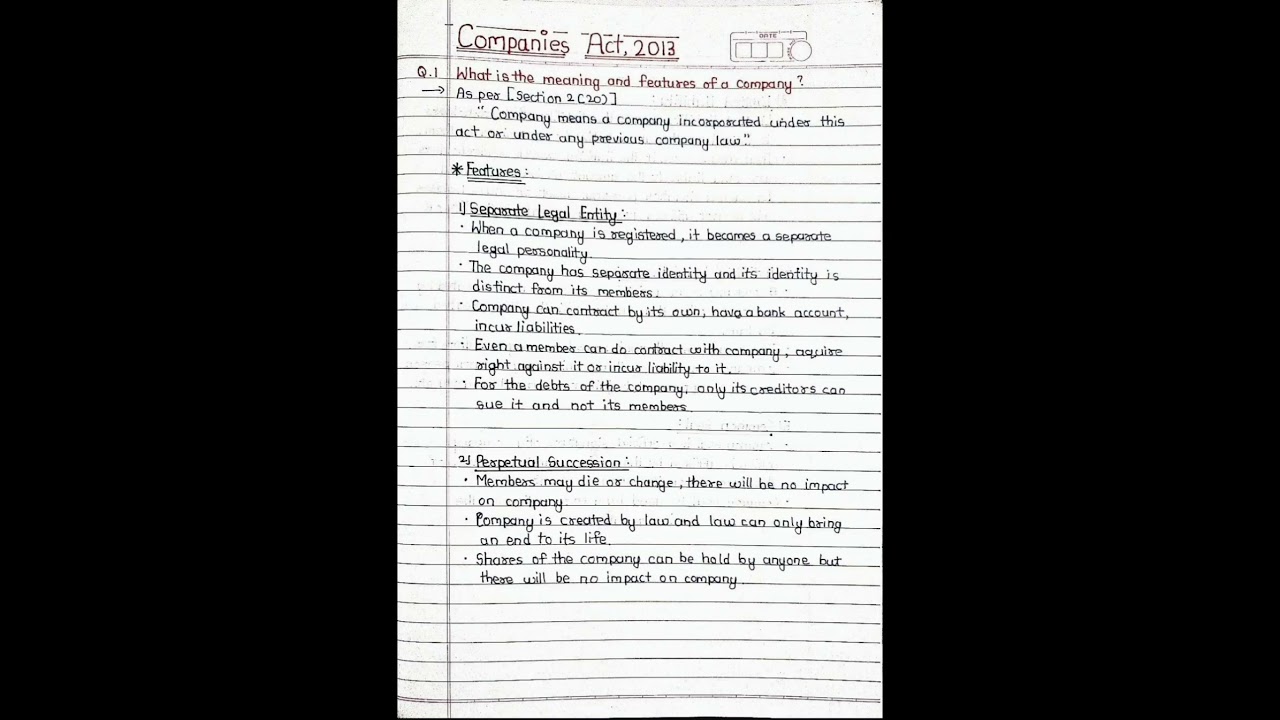 Companies Act, 2013
DATE
Q.1 What is the meaning and features of a company?
→ As per [Section 2(20)]
"Company means a company incorporated under this
act or under any previous company law".
* Features :
1) Separate Legal Entity :
· When a company is registered, it becomes a separate
legal personality.
· The company has separate identity and its identity is
distinct from its members.
· Company can contract by its own, hava a bank account,
incur liabilities.
· Even a member can do contract with company, aquire
right against it or incur liability to it.
· For the debts of the company, only its creditors can
sue it and not its members.
2) Perpetual Succession :
· Members may die or change, there will be no impact
on company.
· Company is created by law and law can only bring
an end to its life.
· Shares of the company can be hold by anyone but
there will be no impact on company.